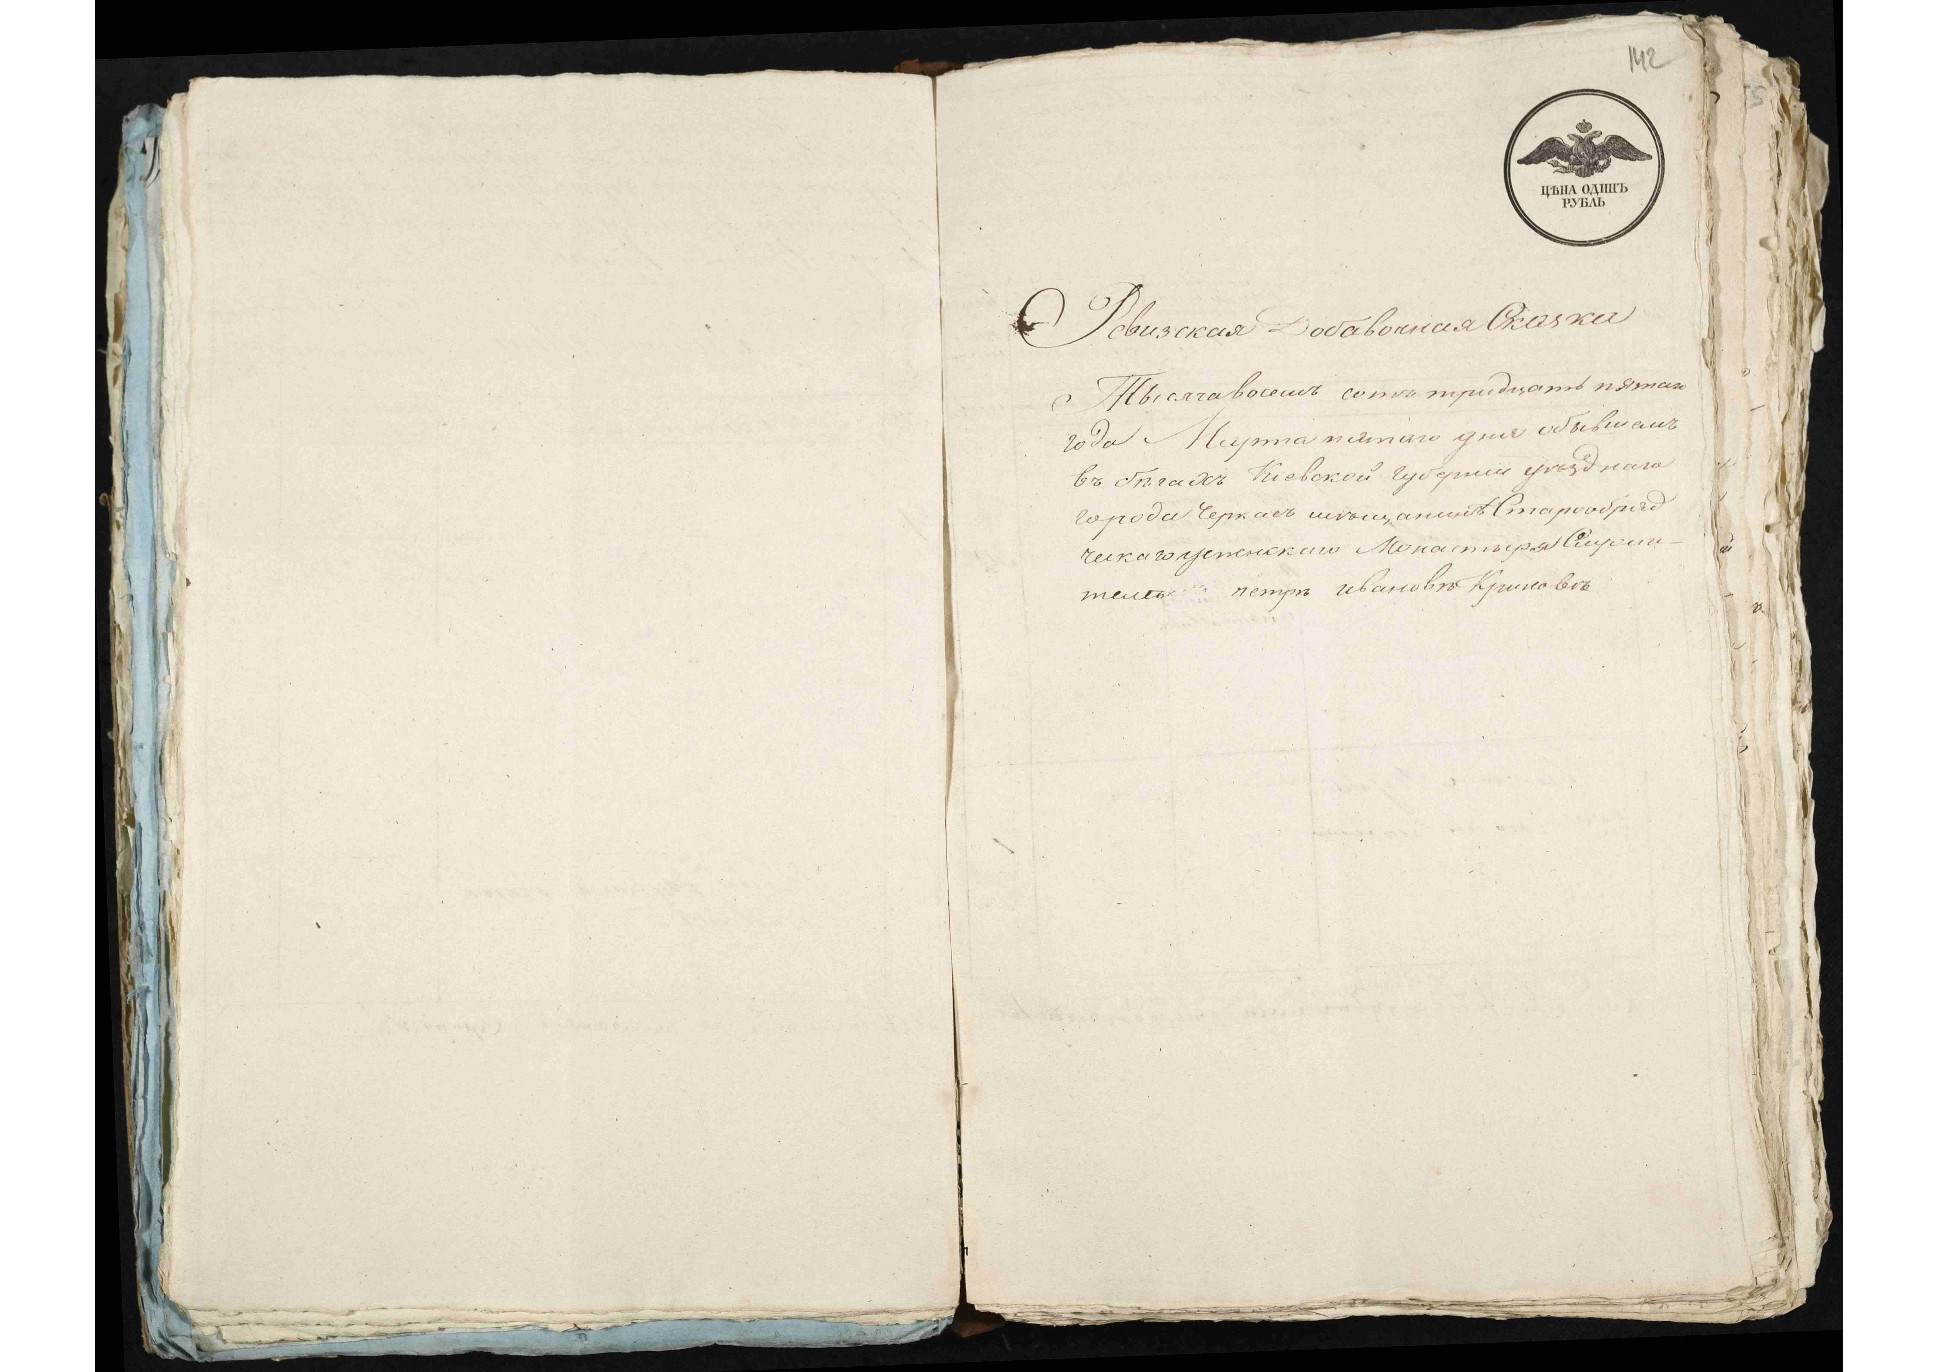 142
ЦѢНА ОДИНЪ
РУБЛЬ
Ревизская Добавочная Сказка
Тысяча восемъ сотъ тридцать пятаго
года Марта пятаго дня обывшемъ
въ бѣгахъ Кіевской губерніи уѣзднаго
города Черкасъ мѣщанинѣ Старообряд
ческаго успенскаго Монастыря
петръ ивановъ Криновъ